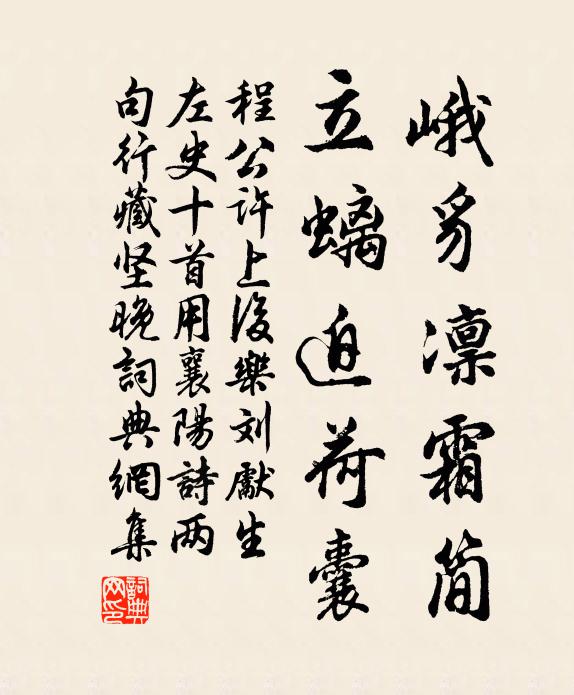 峨豸凛霜简
立螭迫荷囊
程公许上后乐刘献生
左史十首用襄陽詩两
句行藏坚晚詞典網集
詞典
网印